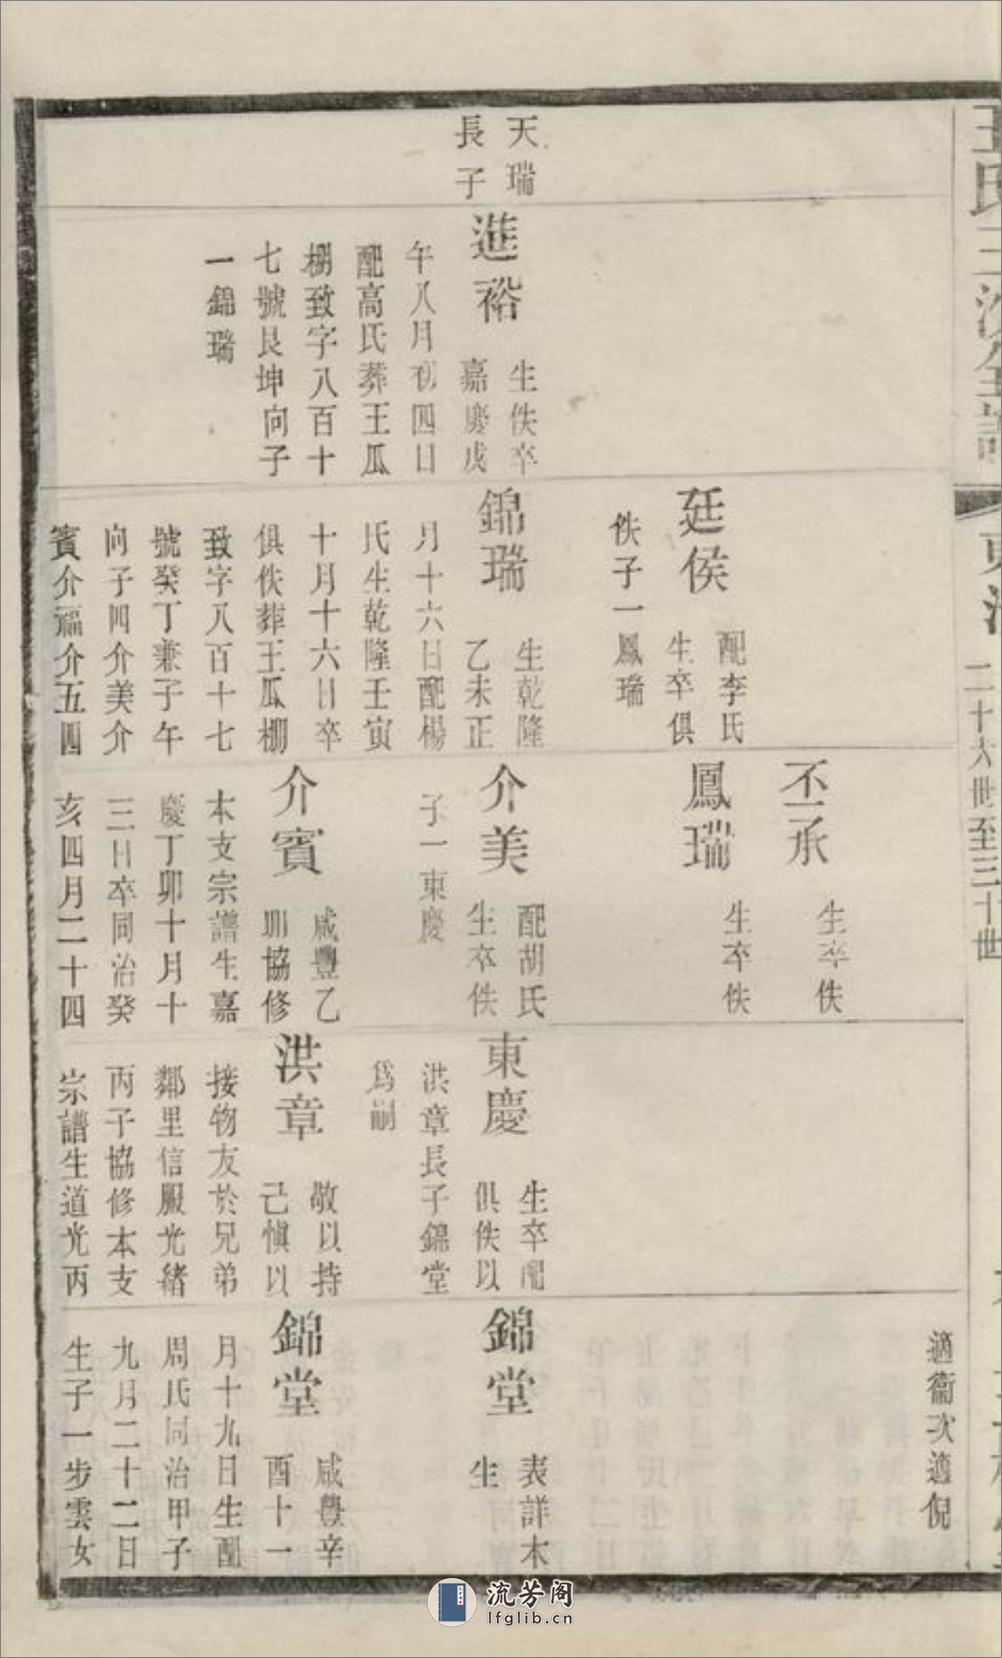 王氏三沙全譜
東沙
二十六世至三十世
天瑞
長子
進裕
生佚卒
嘉慶戊
午八月初四日
配高氏葬王瓜
棚致字八百十
七號艮坤向子
一錦瑞
廷侯
配李氏
生卒俱
佚子一鳳瑞
錦瑞
生乾隆
乙未正
月十六日配楊
氏生乾隆壬寅
十月十六日卒
俱佚葬王瓜棚
致字八百十七
號癸丁兼子午
向子四介美介
賓介福介五四
丕承
生卒佚
鳳瑞
生卒佚
介美
配胡氏
生卒佚
子一東慶
介賓
咸豐乙
卯協修
本支宗譜生嘉
慶丁卯十月十
三日卒同治癸
亥四月二十四
東慶
生卒配
俱佚以
洪章長子錦堂
爲嗣
洪章
敬以持
己慎以
接物友於兄弟
鄰里信服光緒
丙子協修本支
宗譜生道光丙
適衞次適倪
錦堂
表詳本
生
錦堂
咸豐辛
酉十一
月十九日生配
周氏同治甲子
九月二十二日
生子一步雲女
流芳阁
lfglib.cn